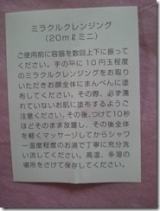 ミラクルクレンジング
(20mℓミニ)
ご使用前に容器を数回上下に振っ
てください。手の平に10円玉程度
のミラクルクレンジングをお取り
いただきお顔全体にまんべんに塗
布してください。その際、必ず濡
れていないお肌に塗布するように
注意ください。その後、つけて10秒
ほどそのまま放置し、その後全体
を軽くマッサージしてからシャワ
ー温度程度のお湯で丁寧に充分洗
い流してください。高温、多湿の
場所をさけて保存してください。